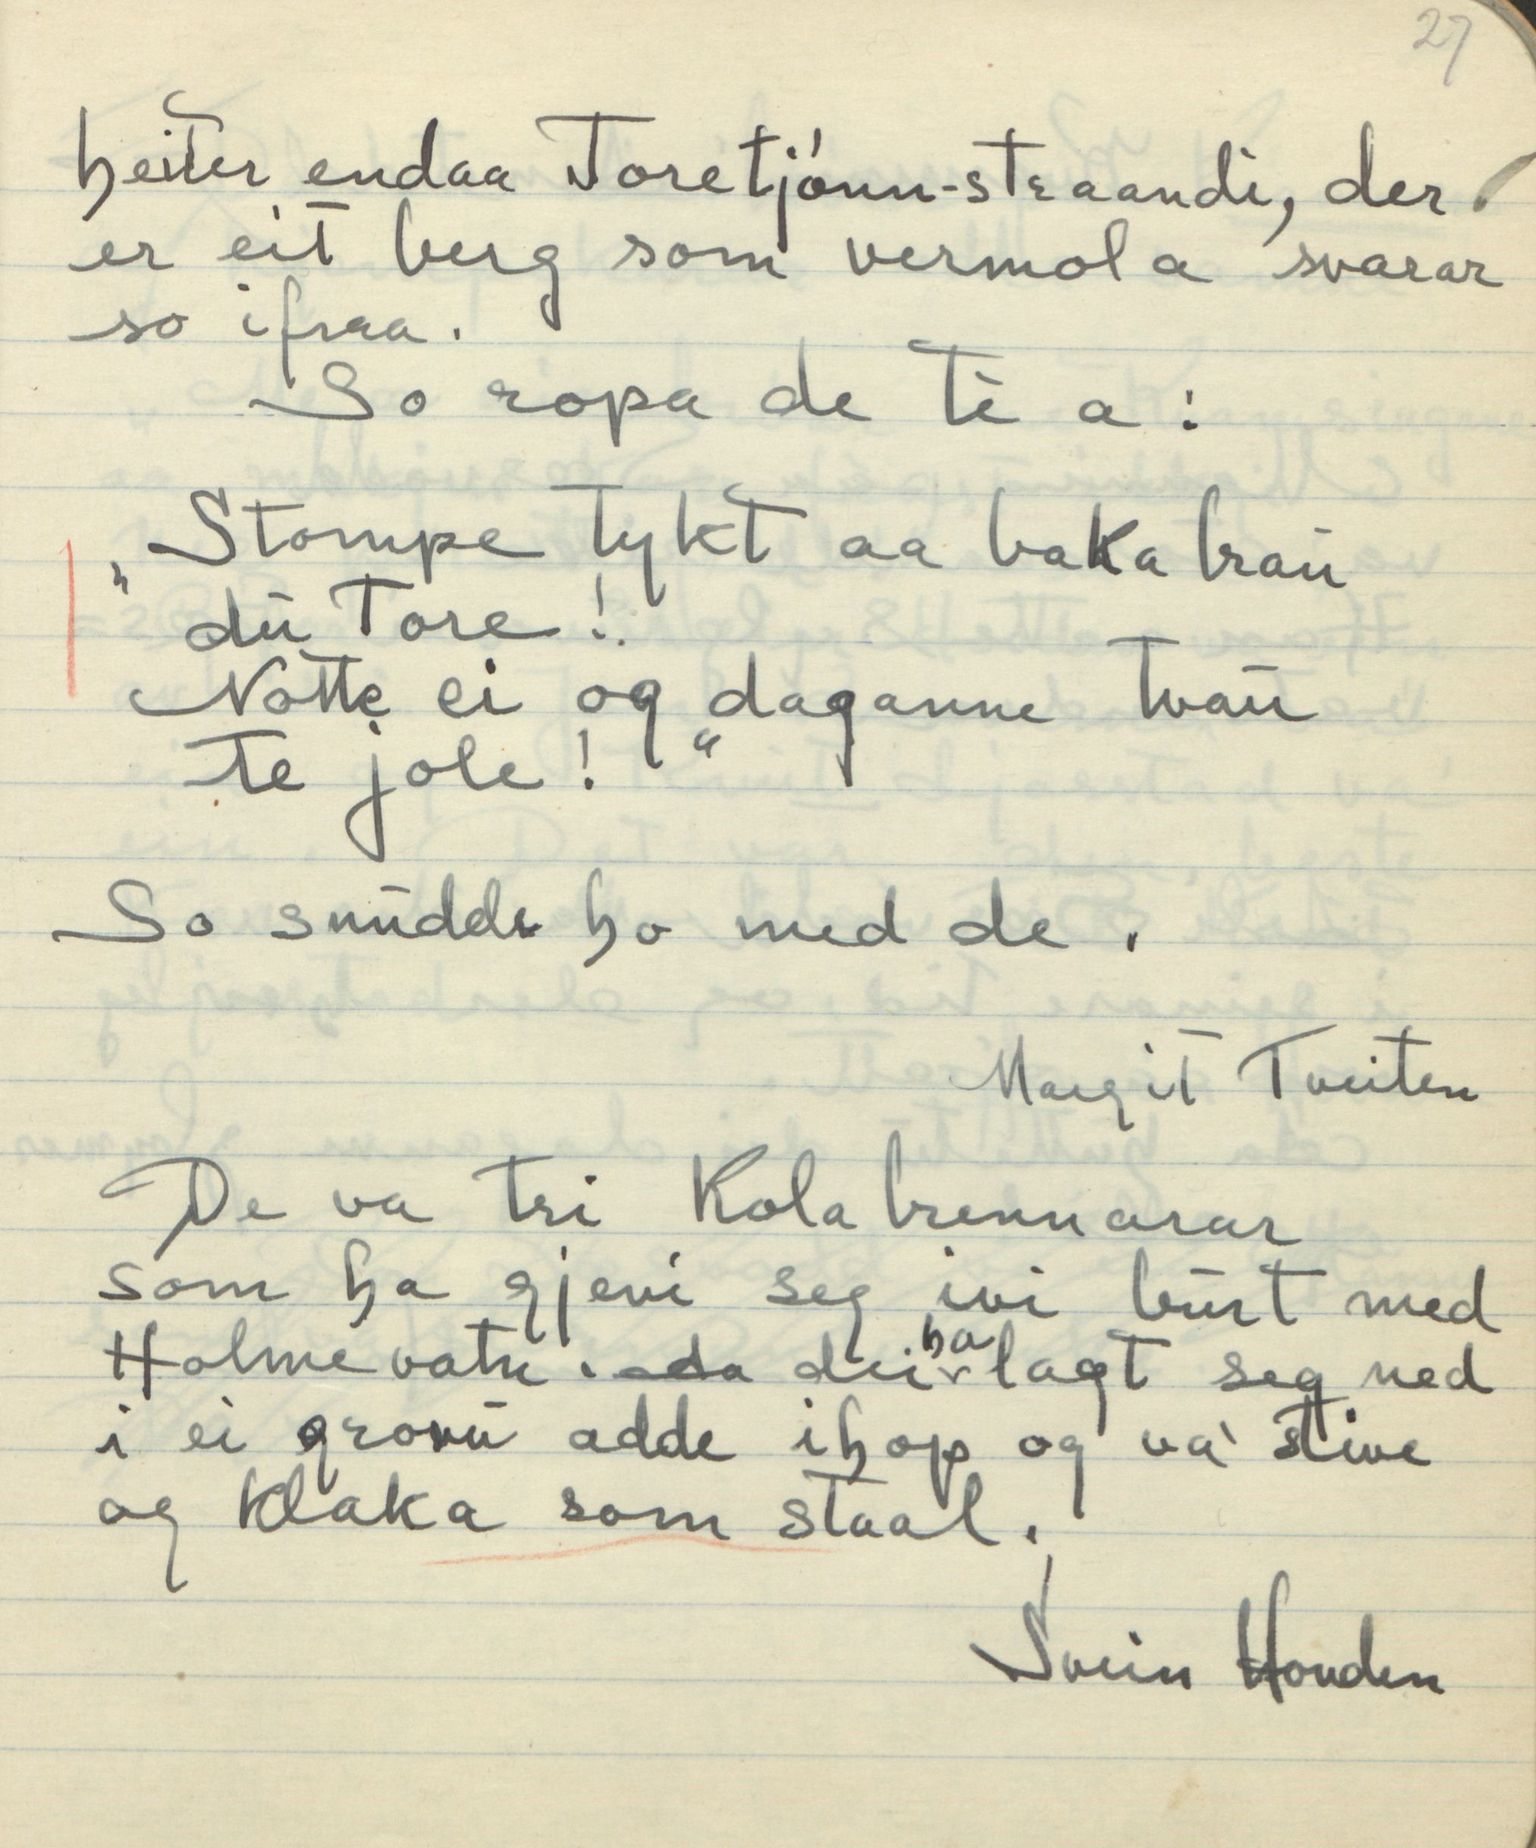 27
heiter endaa Toretjónn-straandi, der
er eit berg som vermola svarar
so ifraa.
So ropa de te a:
„Stompe tykt aa baka brau
du Tore!
Notte ei og daganne tvau
te jole!“
So snudde ho med de.
Margit Tveiten
De va tri Kolabrennarar
som ha gjevi seg ivi burt med
Holmevatn. da dei ha lagt seg ned
i ei grovu adde ihop og va' stive
og klaka som staal.
Svein Hovden